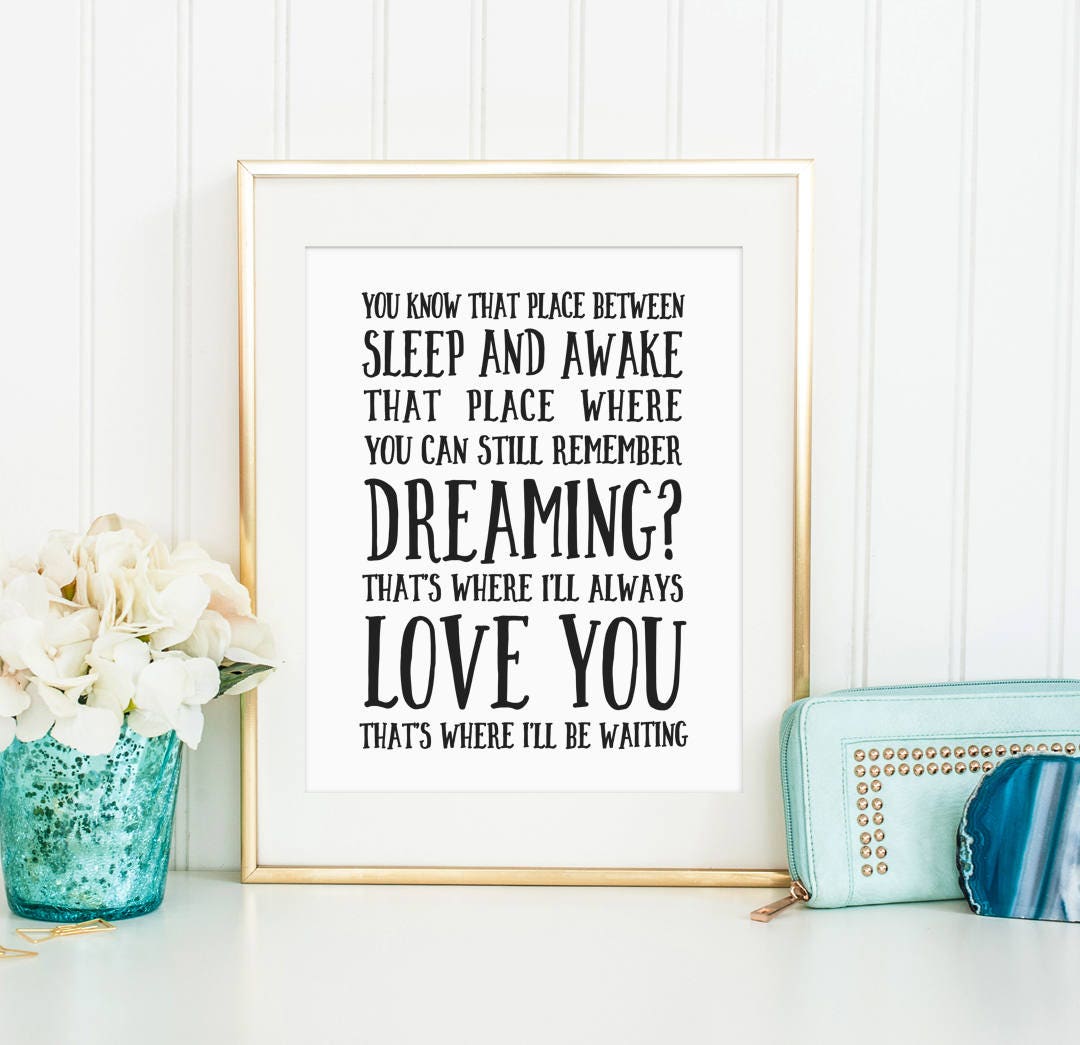 YOU KNOW THAT PLACE BETWEEN
SLEEP AND AWAKE
THAT PLACE WHERE
YOU CAN STILL REMEMBER
DREAMING?
THAT'S WHERE I'LL ALWAYS
LOVE YOU
THAT'S WHERE I'LL BE WAITING